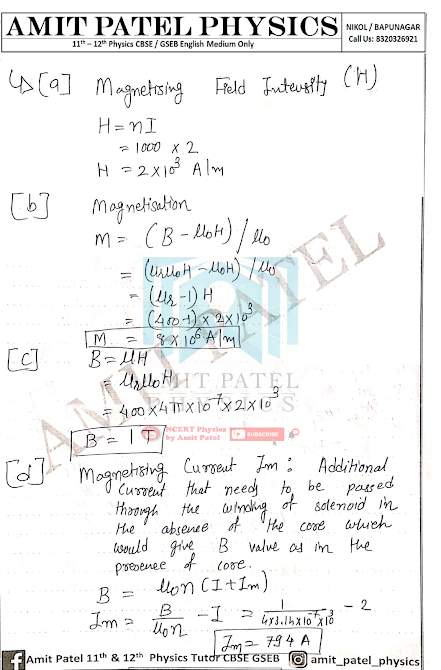 AMIT PATEL PHYSICS
11th – 12th Physics CBSE / GSEB English Medium Only
NIKOL / BAPUNAGAR
Call Us: 8320326921
↳ [a] Magnetising Field Intensity (H)
H = nI
= 1000 × 2
H = 2×10³ A/m
[b] Magnetisation
M = (B - μ0H) / μ0
= (μrμ0H - μ0H) / μ0
= (μr - 1) H
= (400-1) × 2×10³
M = 8×10⁶ A/m
[c] B = μH
= μrμ0H
= 400×4π×10⁻⁷×2×10³
B = 1 T
AMIT PATEL
PHYSICS
NCERT Physics
by Amit Patel
SUBSCRIBE
AMIT PATEL
[d] Magnetising Current Im : Additional
Current that needs to be passed
through the winding of solenoid in
the absence of the core which
would give B value as in the
presence of core.
B = μ0n (I + Im)
Im = B/μ0n - I = 1/4×3.14×10⁻⁷×10³ - 2
Im = 794 A
Amit Patel 11th & 12th Physics Tutor CBSE GSEB
amit_patel_physics